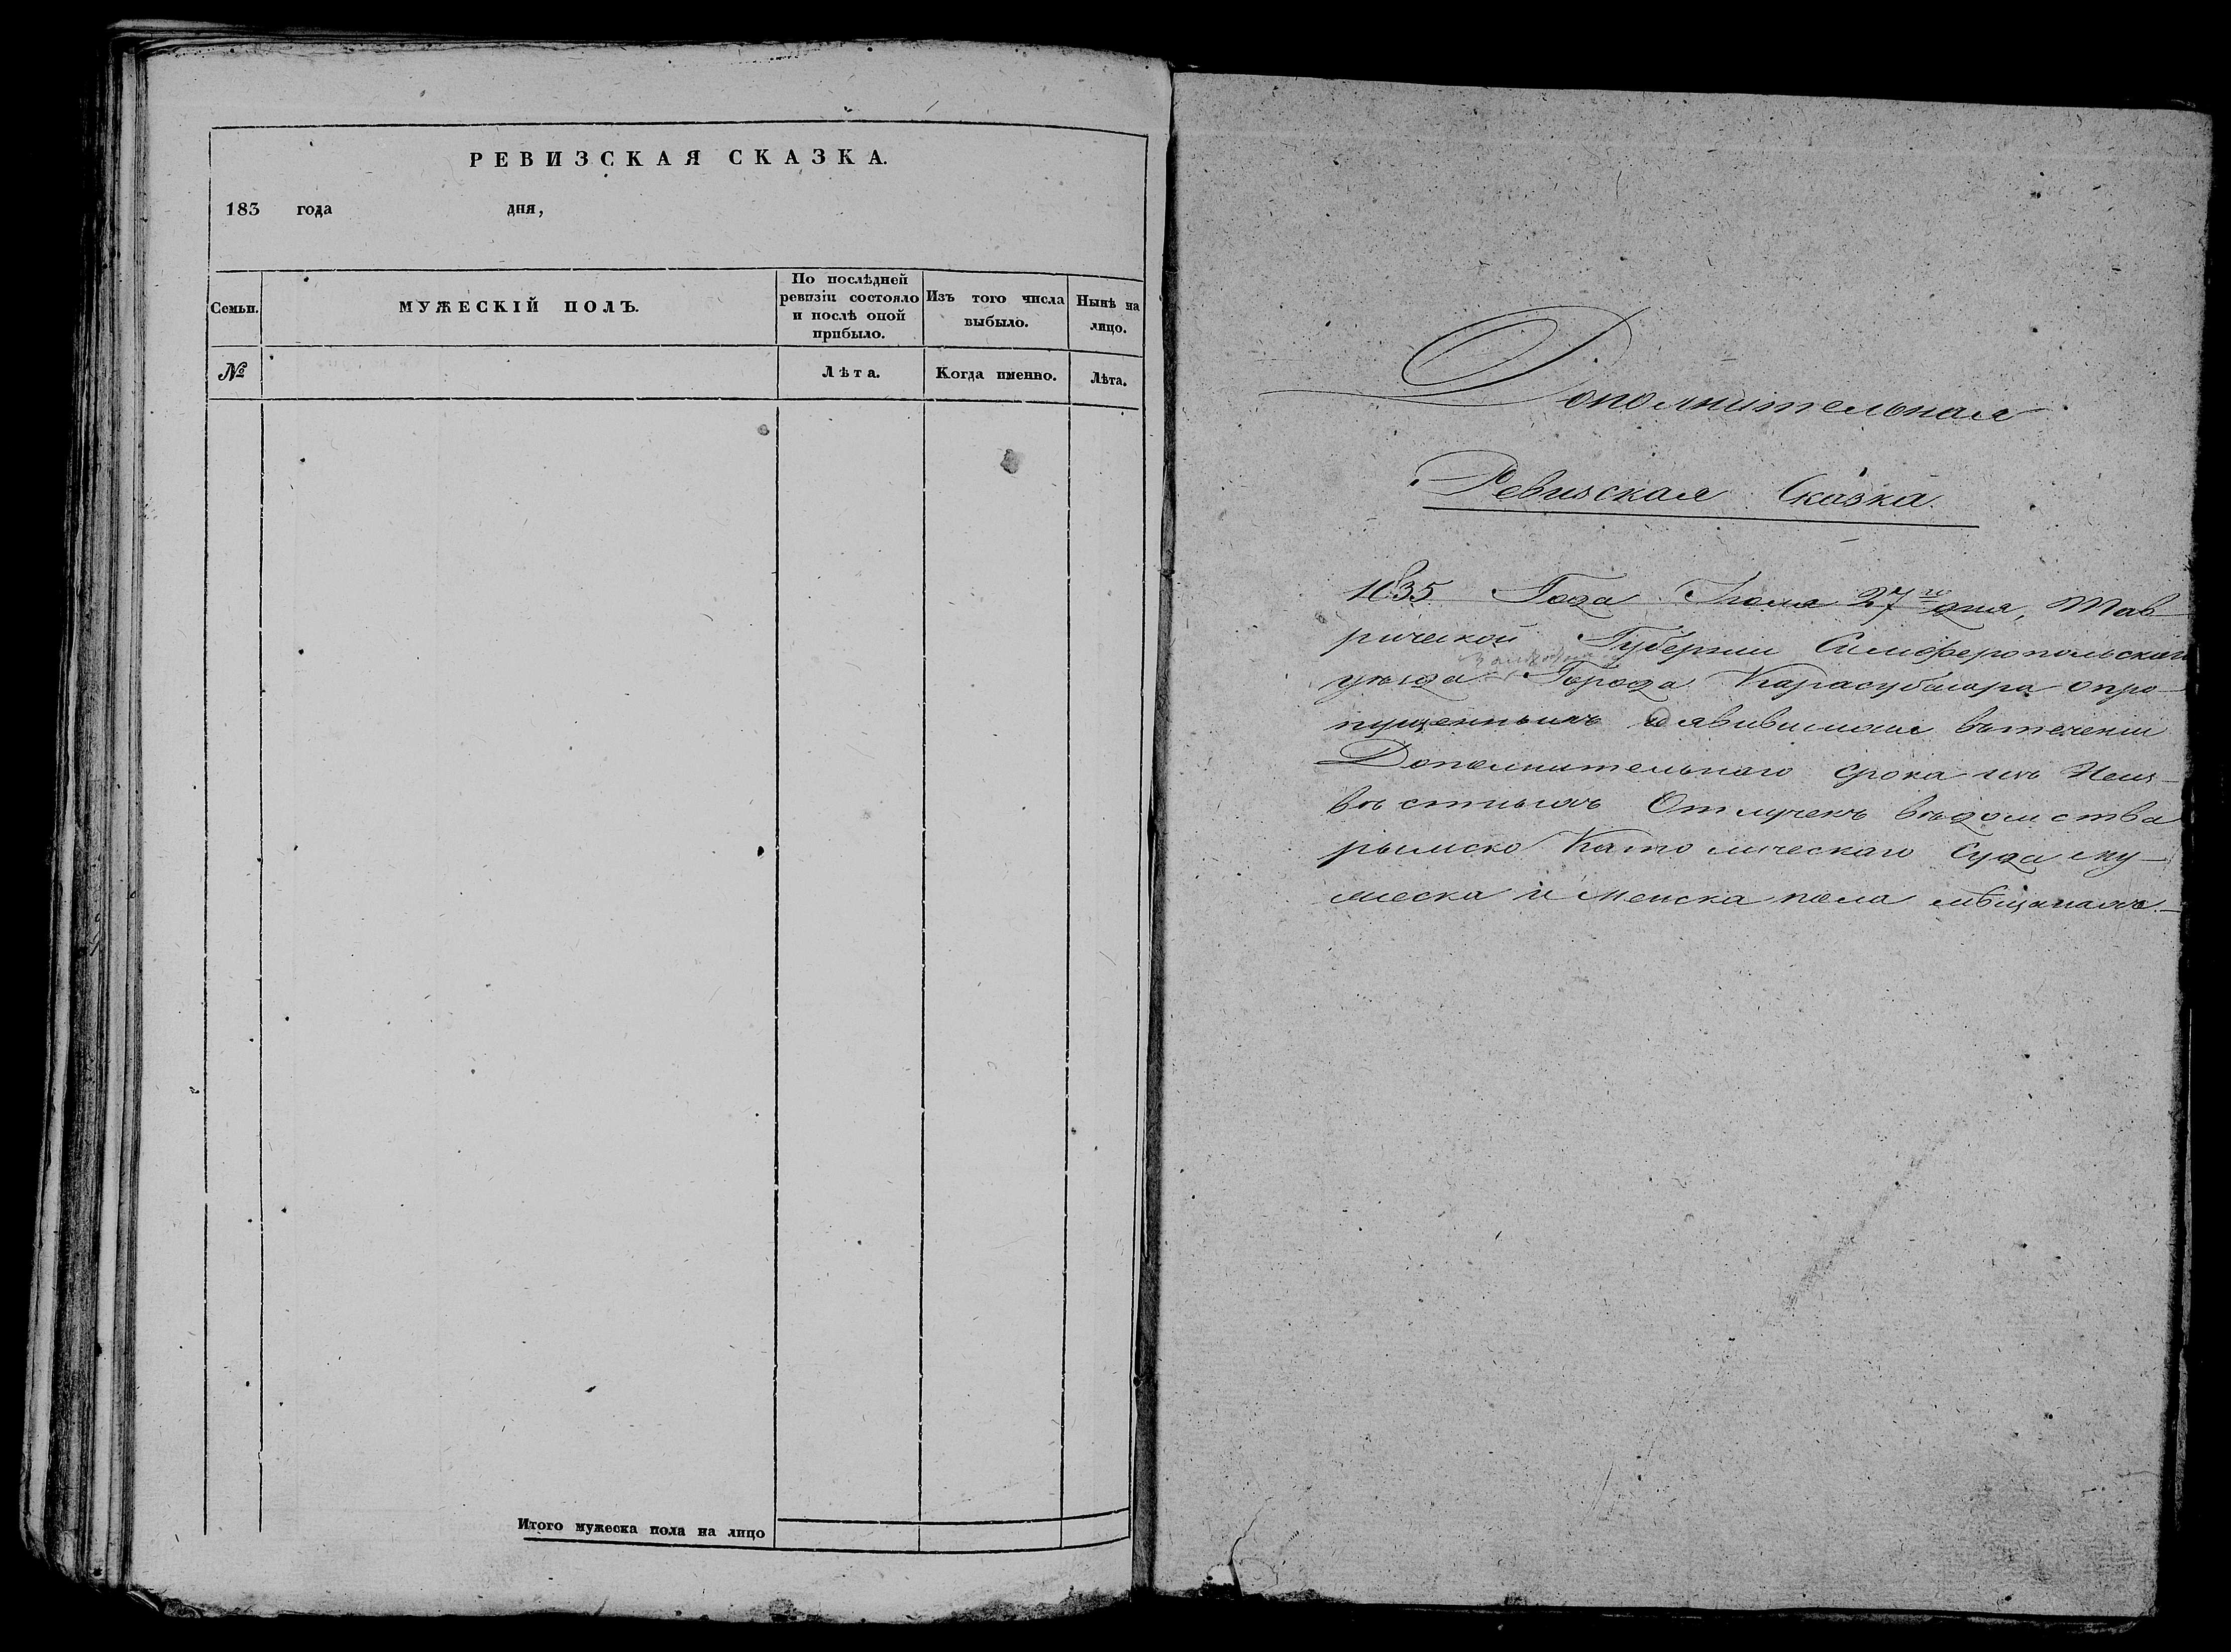 РЕВИЗСКАЯ СКАЗКА.
183 года дня,
Семьи.
МУЖЕСКІЙ ПОЛЪ.
По послѣдней
ревизіи состояло
и послѣ оной
прибыло.
Изъ того числа
выбыло.
Нынѣ на
лицо.
№
Лѣта.
Когда именно.
Лѣта.
Итого мужеска пола на лицо
Дополнительная
Ревизская Сказка.
1835 Года Іюля 27го дня, Тав
рической Губерніи Симферопольскаго
уѣзда Города Карасубазара опро
пущенныхъ и явившихся втеченіи
Дополнительнаго срока изъ Неиз-
вѣстныхъ Отлучекъ вѣдомства
рымско Католическаго Суда му-
жеска и женска пола мѣщанахъ.